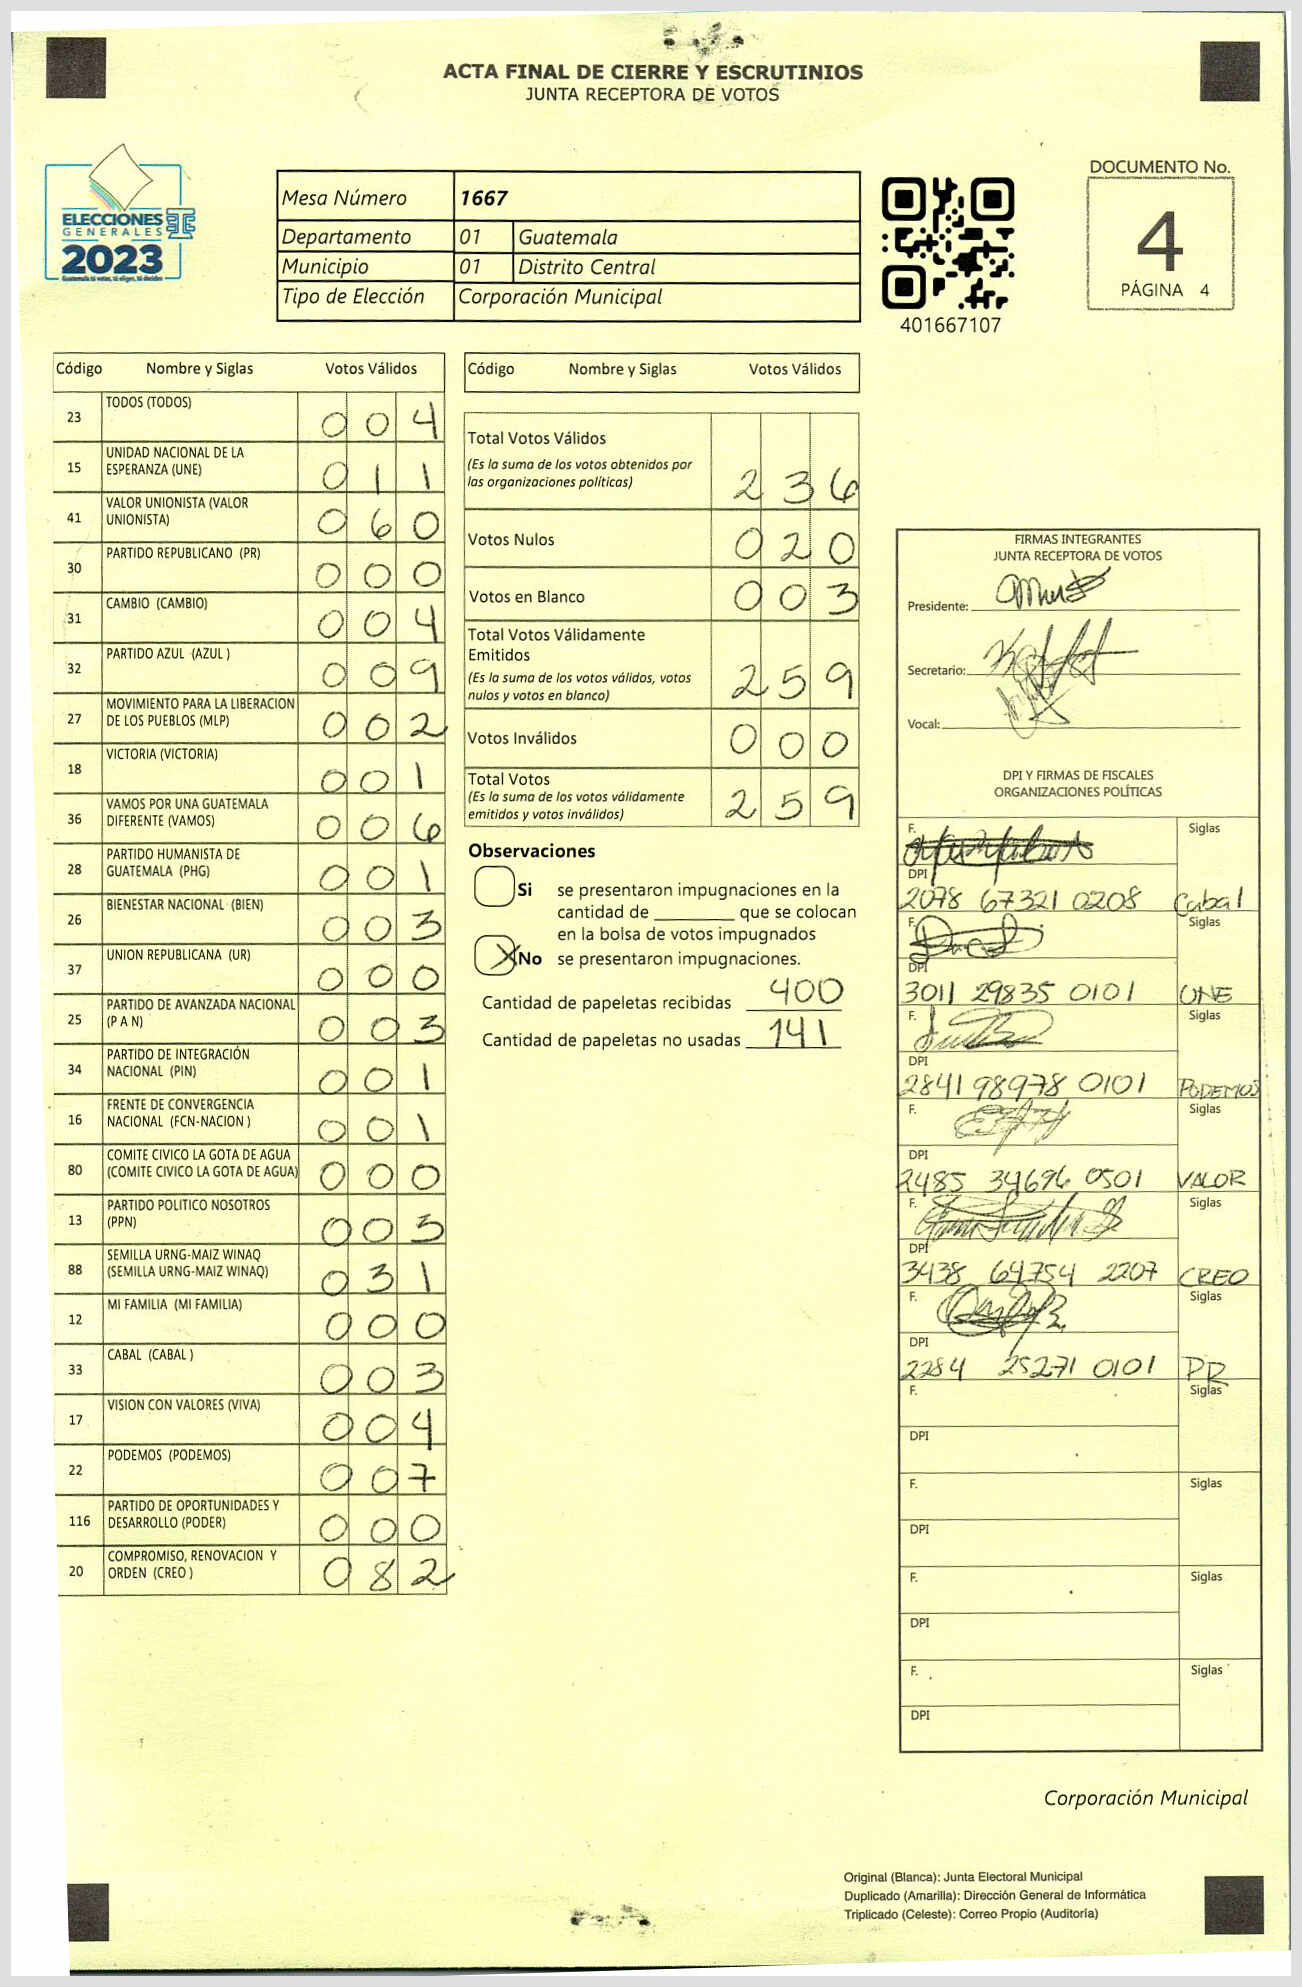 ACTA FINAL DE CIERRE Y ESCRUTINIOS
JUNTA RECEPTORA DE VOTOS
ELECCIONES
GENERALES
2023
Guatemala tú votas, tú eliges, tú decides
Mesa Número 1667
Departamento 01 Guatemala
Municipio 01 Distrito Central
Tipo de Elección Corporación Municipal
401667107
DOCUMENTO No.
4
PÁGINA 4
Código Nombre y Siglas Votos Válidos
23 TODOS (TODOS) 0 0 4
15 UNIDAD NACIONAL DE LA
ESPERANZA (UNE) 0 1 1
41 VALOR UNIONISTA (VALOR
UNIONISTA) 0 6 0
30 PARTIDO REPUBLICANO (PR) 0 0 0
31 CAMBIO (CAMBIO) 0 0 4
32 PARTIDO AZUL (AZUL ) 0 0 9
27 MOVIMIENTO PARA LA LIBERACION
DE LOS PUEBLOS (MLP) 0 0 2
18 VICTORIA (VICTORIA) 0 0 1
36 VAMOS POR UNA GUATEMALA
DIFERENTE (VAMOS) 0 0 6
28 PARTIDO HUMANISTA DE
GUATEMALA (PHG) 0 0 1
26 BIENESTAR NACIONAL (BIEN) 0 0 3
37 UNION REPUBLICANA (UR) 0 0 0
25 PARTIDO DE AVANZADA NACIONAL
(P A N) 0 0 3
34 PARTIDO DE INTEGRACIÓN
NACIONAL (PIN) 0 0 1
16 FRENTE DE CONVERGENCIA
NACIONAL (FCN-NACION ) 0 0 1
80 COMITE CIVICO LA GOTA DE AGUA
(COMITE CIVICO LA GOTA DE AGUA) 0 0 0
13 PARTIDO POLITICO NOSOTROS
(PPN) 0 0 3
88 SEMILLA URNG-MAIZ WINAQ
(SEMILLA URNG-MAIZ WINAQ) 0 3 1
12 MI FAMILIA (MI FAMILIA) 0 0 0
33 CABAL (CABAL ) 0 0 3
17 VISION CON VALORES (VIVA) 0 0 4
22 PODEMOS (PODEMOS) 0 0 7
116 PARTIDO DE OPORTUNIDADES Y
DESARROLLO (PODER) 0 0 0
20 COMPROMISO, RENOVACION Y
ORDEN (CREO ) 0 8 2
Código Nombre y Siglas Votos Válidos
Total Votos Válidos
(Es la suma de los votos obtenidos por
las organizaciones políticas) 2 3 6
Votos Nulos 0 2 0
Votos en Blanco 0 0 3
Total Votos Válidamente
Emitidos
(Es la suma de los votos válidos, votos
nulos y votos en blanco) 2 5 9
Votos Inválidos 0 0 0
Total Votos
(Es la suma de los votos válidamente
emitidos y votos inválidos) 2 5 9
Observaciones
Si se presentaron impugnaciones en la
cantidad de ________ que se colocan
en la bolsa de votos impugnados
X No se presentaron impugnaciones.
Cantidad de papeletas recibidas 400
Cantidad de papeletas no usadas 141
FIRMAS INTEGRANTES
JUNTA RECEPTORA DE VOTOS
Presidente:
Secretario:
Vocal:
DPI Y FIRMAS DE FISCALES
ORGANIZACIONES POLÍTICAS
F. Siglas
DPI
2078 67321 0208 Cabal
F. Siglas
DPI
3011 29835 0101 UNE
F. Siglas
DPI
2841 98978 0101 PODEMOS
F. Siglas
DPI
2485 34696 0501 VALOR
F. Siglas
DPI
3438 64754 2207 CREO
F. Siglas
DPI
2284 25271 0101 PR
F. Siglas
DPI
F. Siglas
DPI
F. Siglas
DPI
F. Siglas
DPI
Corporación Municipal
Original (Blanca): Junta Electoral Municipal
Duplicado (Amarilla): Dirección General de Informática
Triplicado (Celeste): Correo Propio (Auditoría)